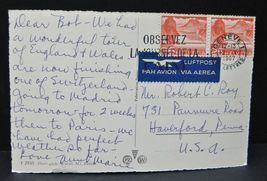 Dear Bob - We had
a wonderful tour
of England & Wales
are now finishing
one of Switzerland.
Going to Madrid
tomorrow for 2 weeks
then to Paris - we
have had perfect
weather so far -
Love
OBSERVEZ
LUFTPOST
PAR AVION VIA AEREA
Mr. Robert C. Roy
731 Panmure Road
Haverford, Penna
U.S.A.